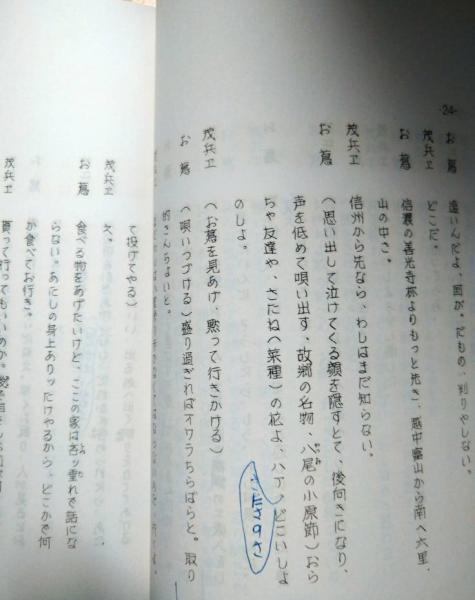 -24-
お蔦　遠いんだよ、国が。だもの、判りやしない。
茂兵ヱ　どこだ。
お蔦　信濃の善光寺様よりもっと先き、越中富山から南へ六里、
山の中さ。
茂兵ヱ　信州から先なら、わしはまだ知らない。
お蔦　（思い出して泣けてくる顔を隠すとて、後向きになり、
声を低めて唄い出す、故郷の名物、八尾の小原節）おら
ちゃ友達や、さたねヘ（菜種）の花よ、ハア、どこいしよ
のしよ。
茂兵ヱ　（お蔦を見あげ、黙って行きかける）
お蔦　（唄いつづける）盛り過ぎればオワラちらばらと。取り
的さんちょいと。
て投げてやる）
茂兵ヱ　え。
お蔦　食べる物をあげたいけど、ここの家は吝ッ垂れで話にな
らない。あたしの身上ありッたけやるから、どこかで何
か食べてお行き。
茂兵ヱ　貰って行ってもいいのか。